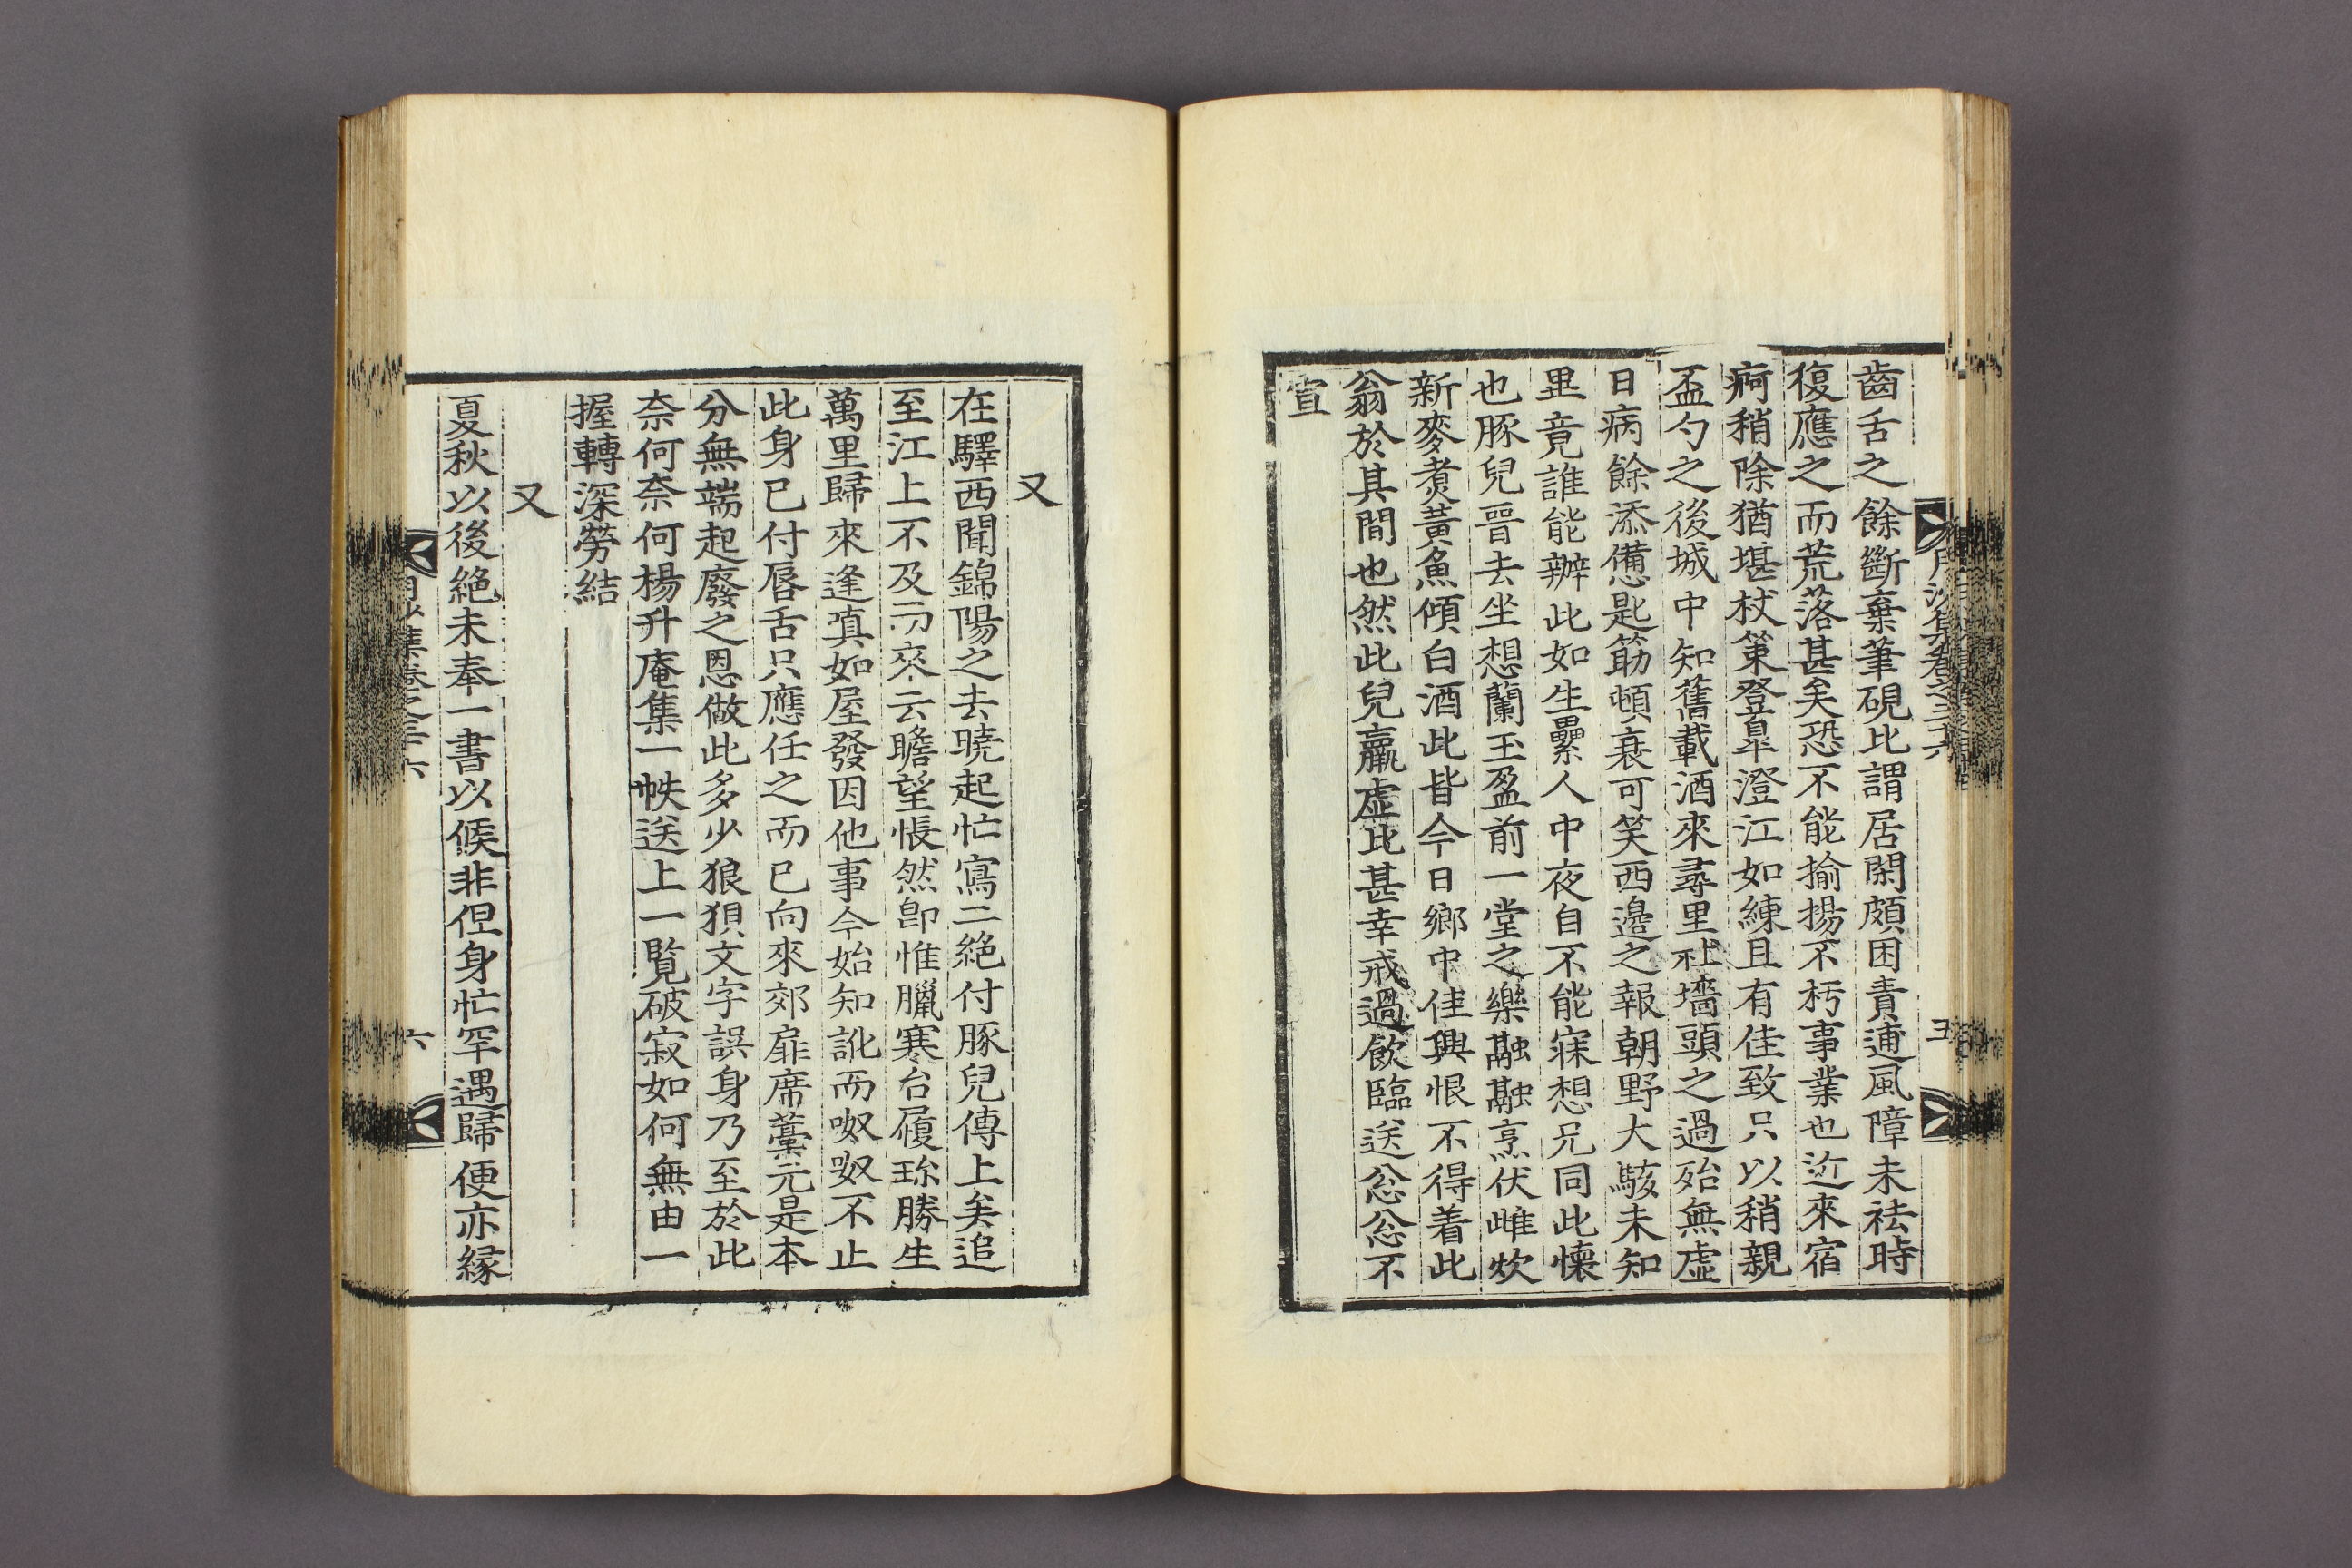 齒舌之餘斷棄筆硯比謂居閑頗困責逋風障未祛時
復應之而荒落甚矣恐不能揄揚不朽事業也近來宿
痾稍除猶堪杖策登皐澄江如練且有佳致只以稍親
盃勺之後城中知舊載酒來尋里社墻頭之過殆無虛
日病餘添憊匙筯頓衰可笑西邊之報朝野大駭未知
畢竟誰能辦此如生纍人中夜自不能寐想兄同此懷
也豚兒晉去坐想蘭玉盈前一堂之樂融融烹伏雌炊
新麥煑黃魚傾白酒此皆今日鄕中佳興恨不得着此
翁於其間也然此兒羸虛比甚幸戒過飮臨送忩忩不
宣
月沙集卷之三十六
五
又
在驛西聞錦陽之去曉起忙寫二絶付豚兒傳上矣追
至江上不及而來云瞻望悵然卽惟臘寒台履珎勝生
萬里歸來逢眞如屋發因他事今始知訛而呶呶不止
此身已付唇舌只應任之而已向來郊扉席藁元是本
分無端起廢之恩做此多少狼狽文字誤身乃至於此
奈何奈何楊升庵集一帙送上一覽破寂如何無由一
握轉深勞結
又
夏秋以後絶未奉一書以候非但身忙罕遇歸便亦緣
月沙集卷之三十六
六